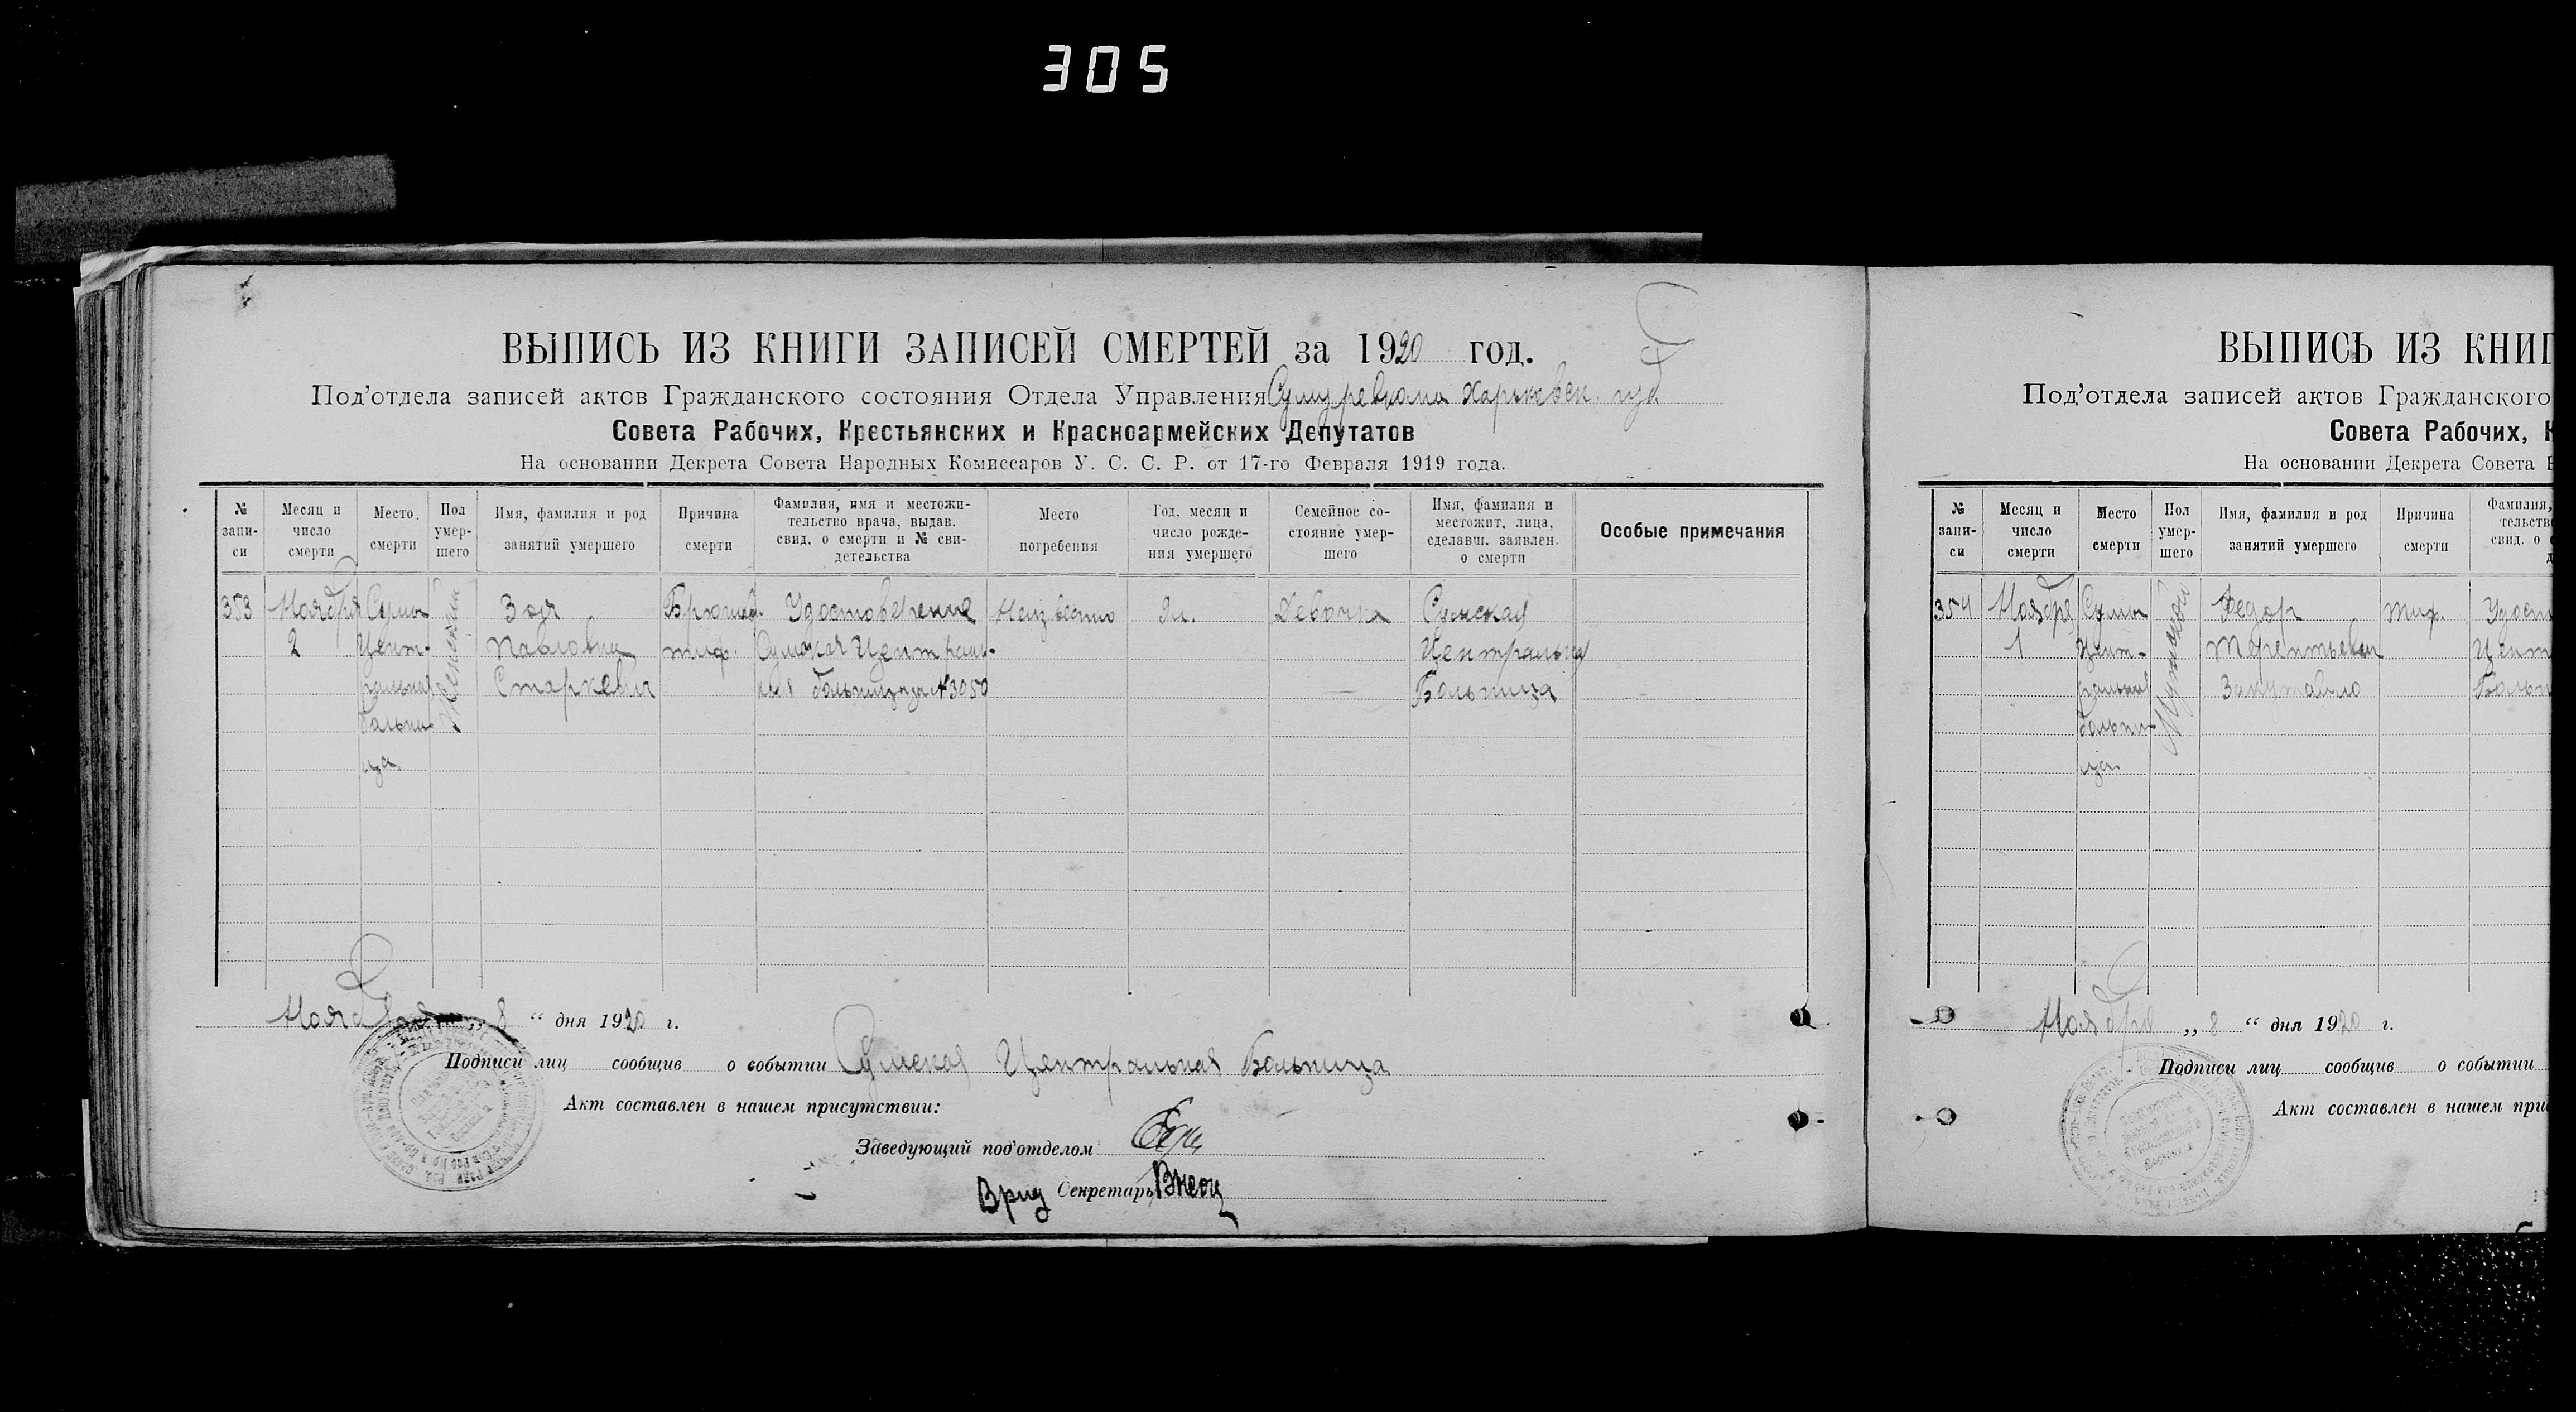 305
ВЫПИСЬ ИЗ КНИГИ ЗАПИСЕЙ СМЕРТЕЙ за 1920 год.
Под'отдела записей актов Гражданского состояния Отдела Управления Сумуревкома Харьковск. губ
Совета Рабочих, Крестьянских и Красноармейских Депутатов
На основании Декрета Совета Народных Комиссаров У. С. С. Р. от 17-го Февраля 1919 года.
№ запи-си
Месяц и число смерти
Место смерти
Пол умер-шего
Имя, фамилия и род занятий умершего
Причина смерти
Фамилия, имя и местожи-тельство врача, выдав. свид. о смерти и № сви-детельства
Место погребения
Год, месяц и число рожде-ния умершего
Семейное со-стояние умер-шего
Имя, фамилия и местожит. лица, сделавш. заявлен. о смерти
Особые примечания
353
Ноября
2
Сумы
Цент-
ральная
больни-
ца
Женский
Зоя
Павловна
Старкевич
Брюшн.
тиф.
Удостоверение
Сумская Централь-
ная больница № 3050
Неизвестно
9 л.
Девочка
Сумская
Центральная
Больница
Ноября „ 8 “ дня 1920 г.
Подписи лиц сообщив о событии Сумская Центральная Больница
Акт составлен в нашем присутствии:
Заведующий под'отделом
Врид Секретарь
ВЫПИСЬ ИЗ КНИГ
Под'отдела записей актов Гражданского
Совета Рабочих, К
На основании Декрета Совета
№ запи-си
Месяц и число смерти
Место смерти
Пол умер-шего
Имя, фамилия и род занятий умершего
Причина смерти
Фамилия,
тельств
свид. о
354
Ноября
1
Сумы
Цент-
ральная
больни-
ца
Мужской
Федор
Терентьевич
тиф.
Удост
Цент
Больн
Ноября „ 8 “ дня 1920 г.
Подписи лиц сообщив о событии
Акт составлен в нашем при